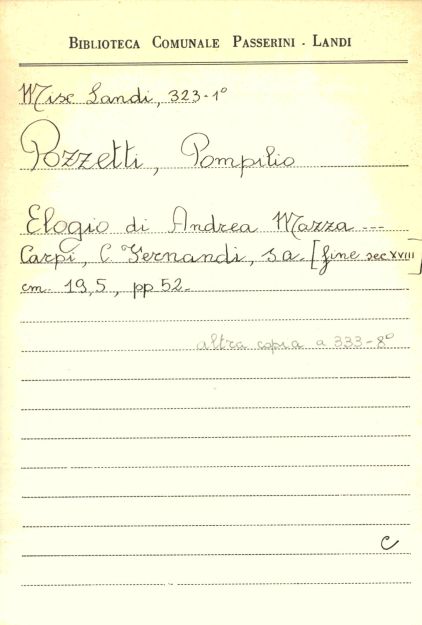 BIBLIOTECA COMUNALE PASSERINI - LANDI
Misc Landi, 323-1°
Pozzetti, Pompilio
Elogio di Andrea Mazza ---
Carpi, C. Fernandi, s.a. [fine sec XVIII]
cm. 19,5, pp 52.
altra copia a 333-8°
C